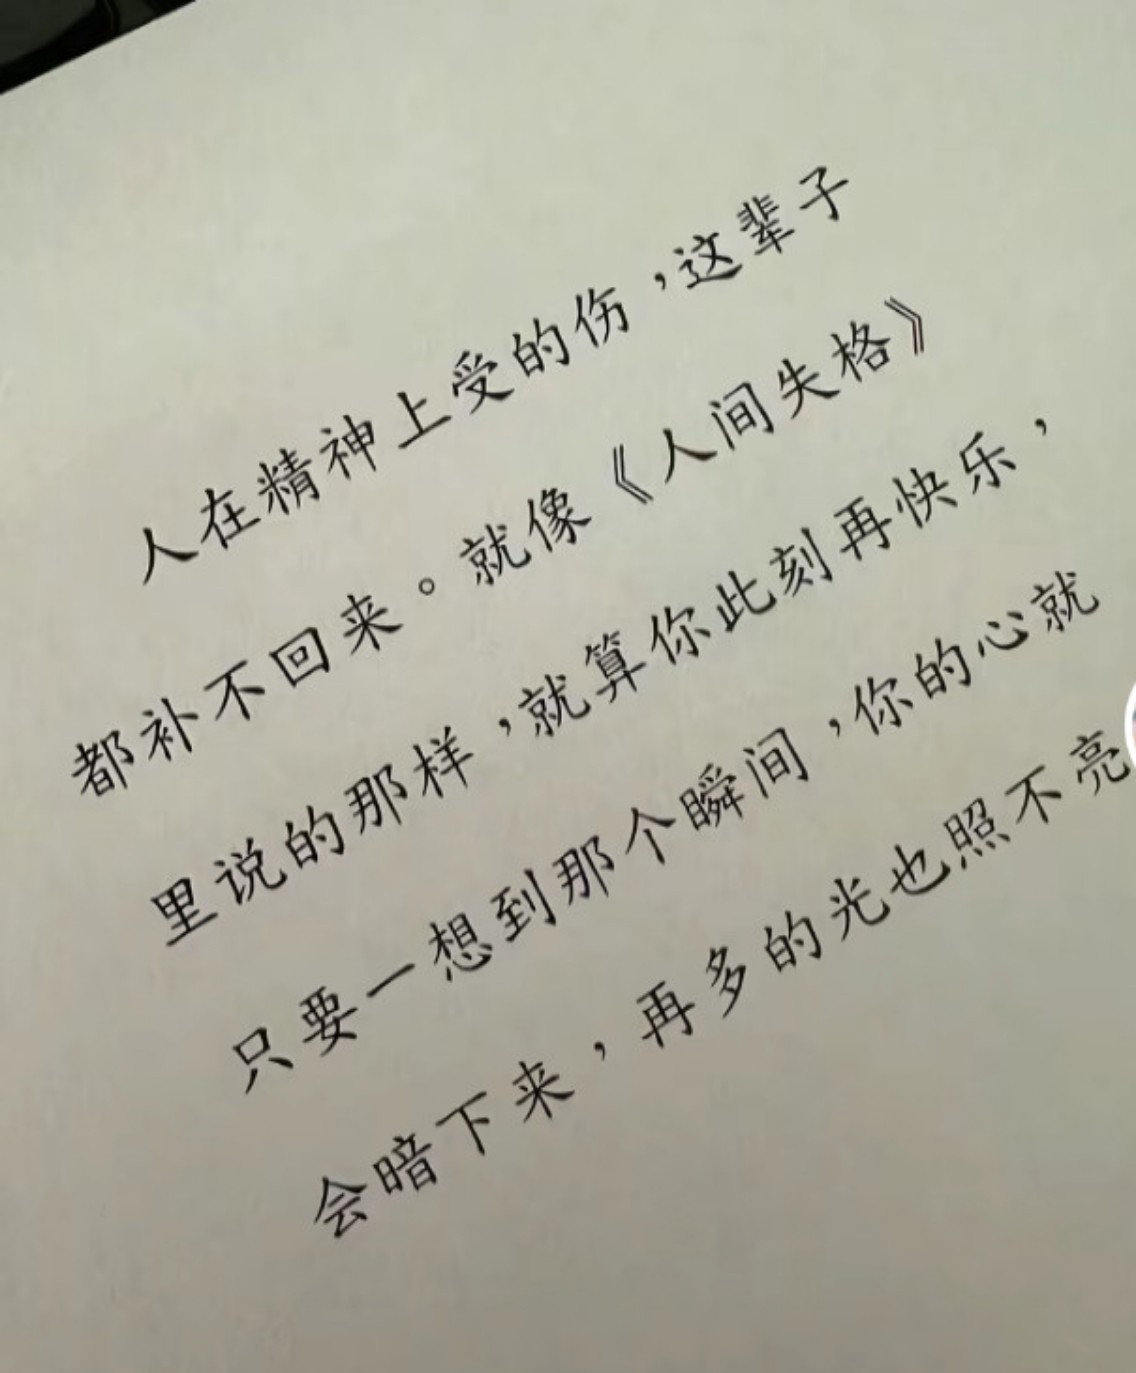 人在精神上受的伤，这辈子
都补不回来。就像《人间失格》
里说的那样，就算你此刻再快乐，
只要一想到那个瞬间，你的心就
会暗下来，再多的光也照不亮